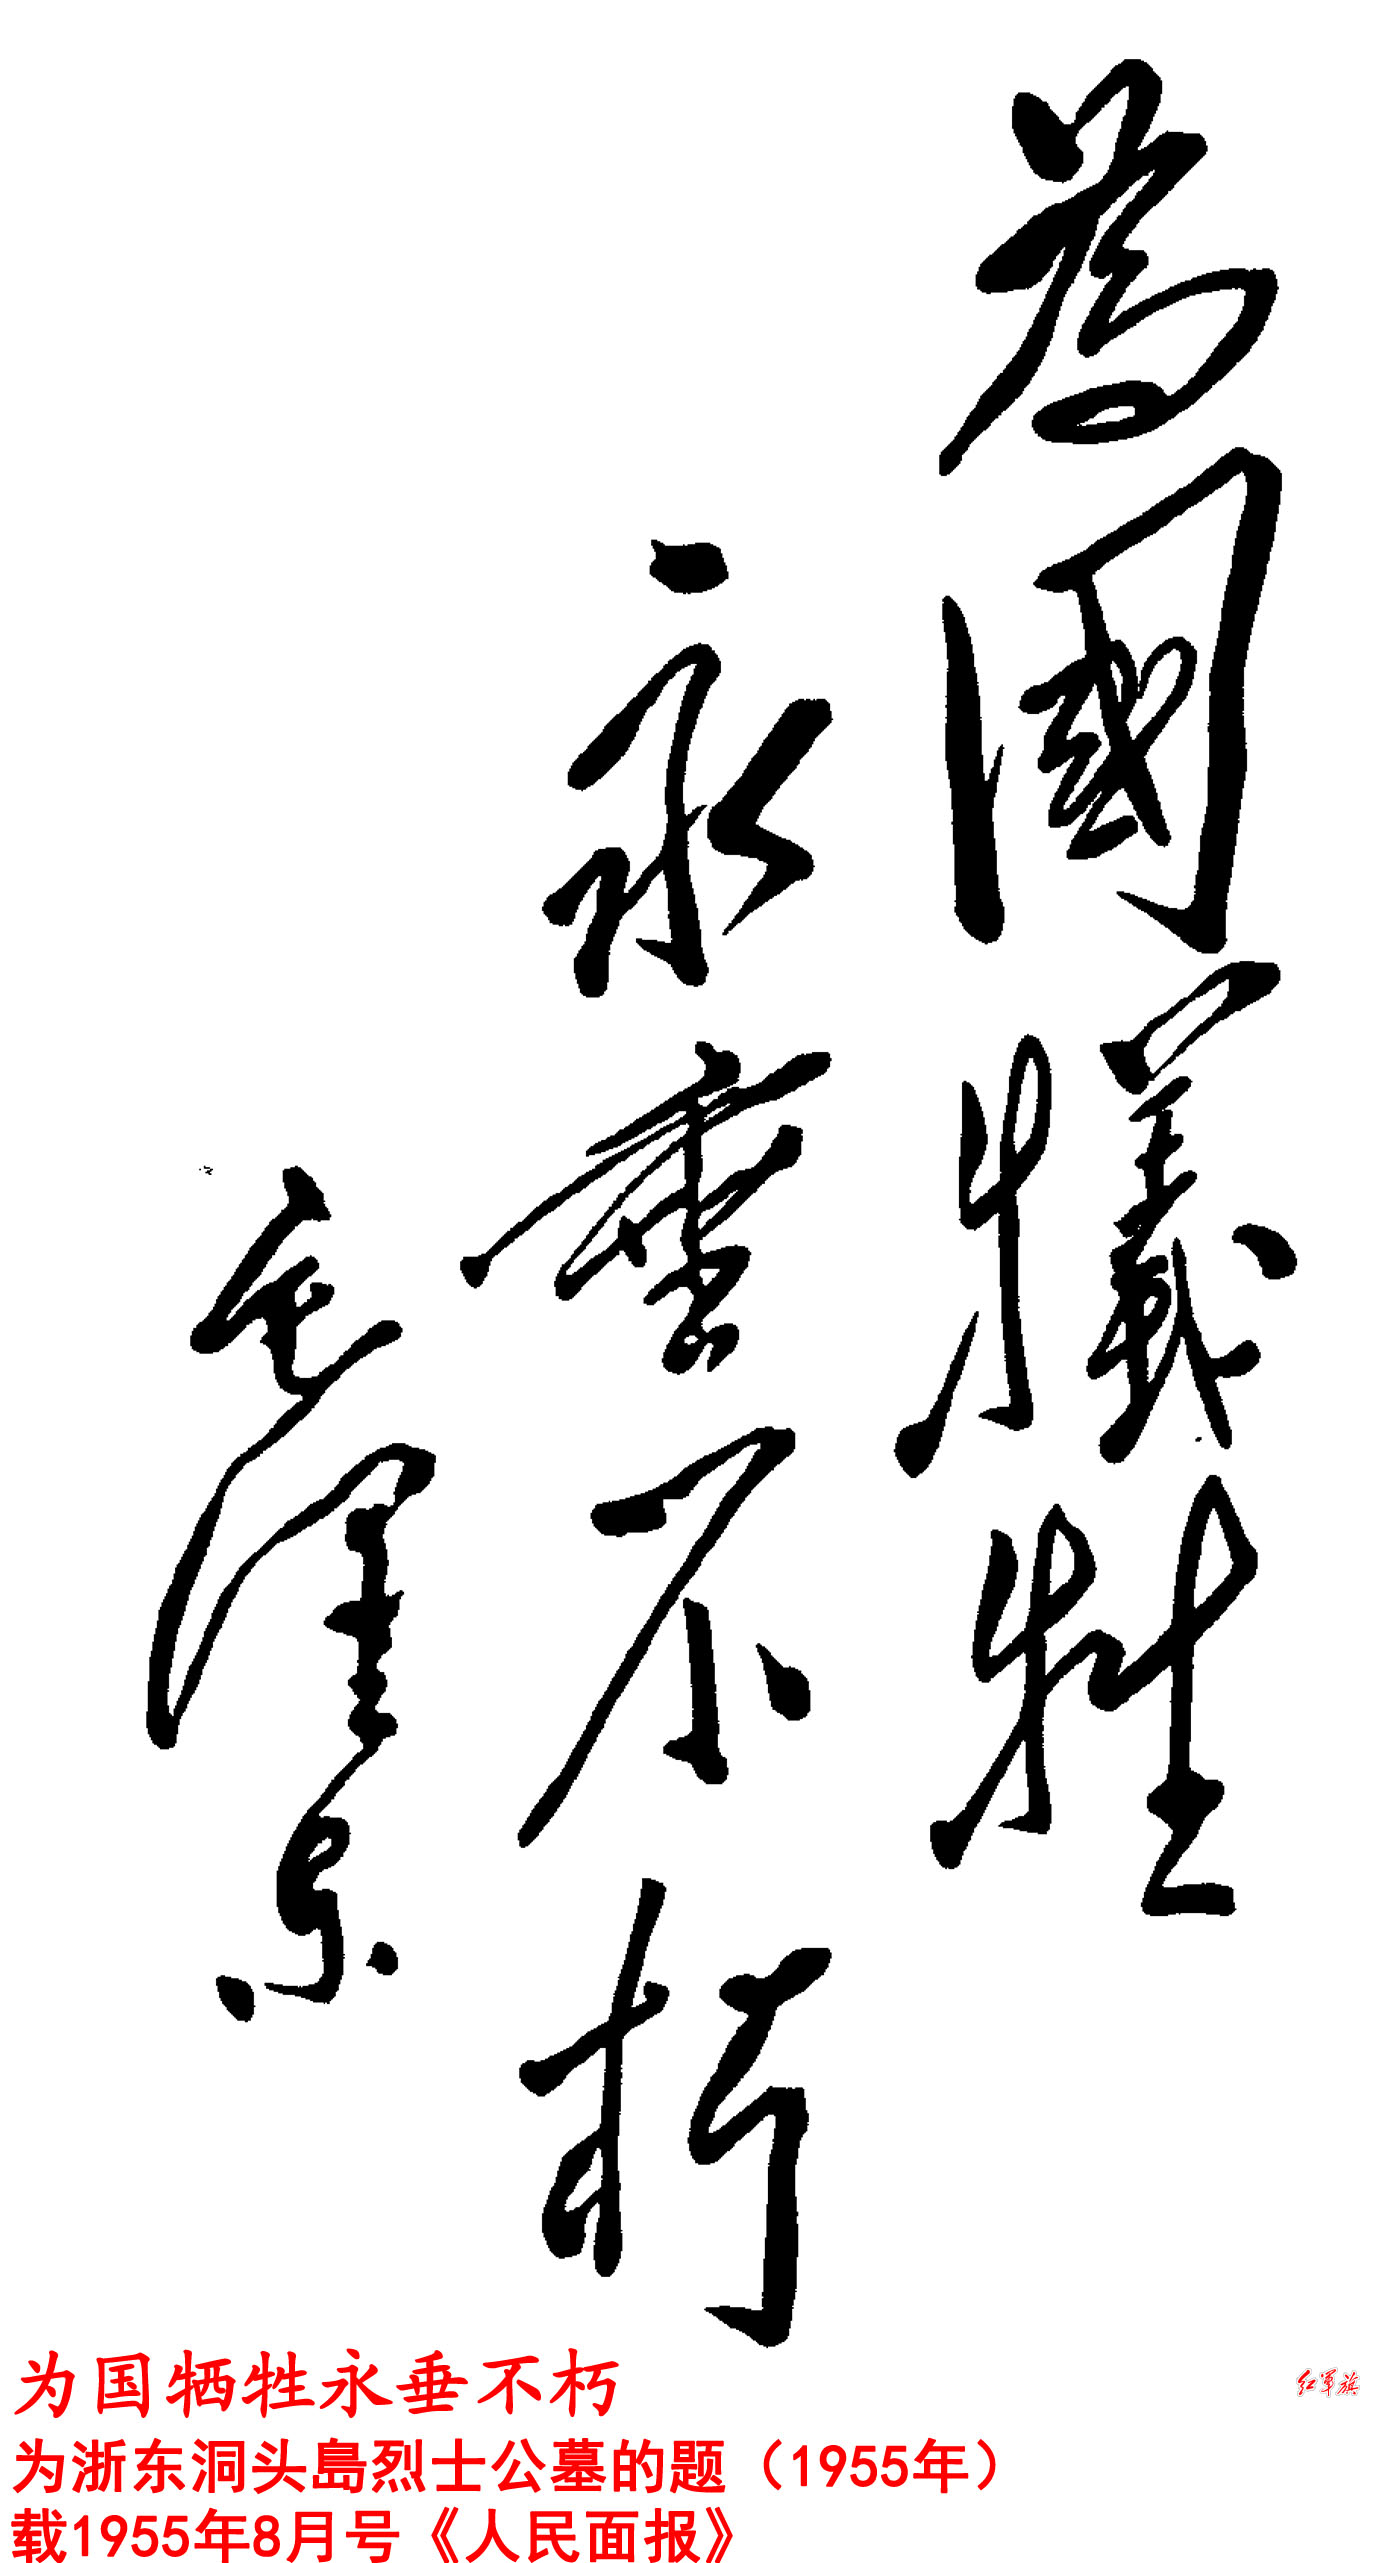 為國犧牲
永垂不朽
毛澤东
为国牺牲永垂不朽
为浙东洞头島烈士公墓的题（1955年）
载1955年8月号《人民面报》
红军旗